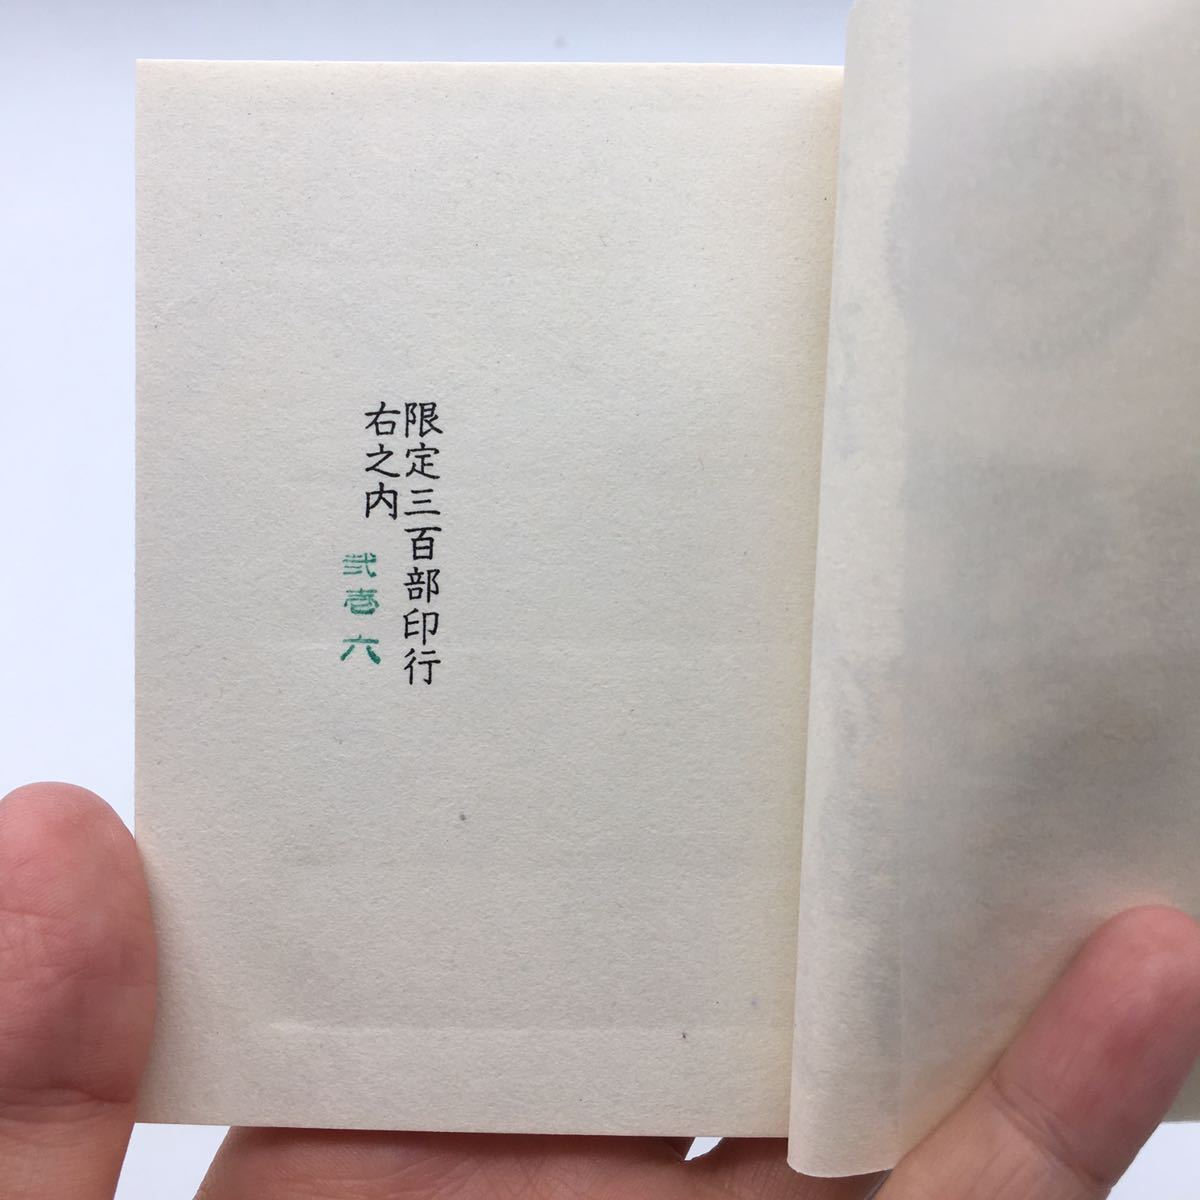 限定三百部印行
右之内
弐壱六